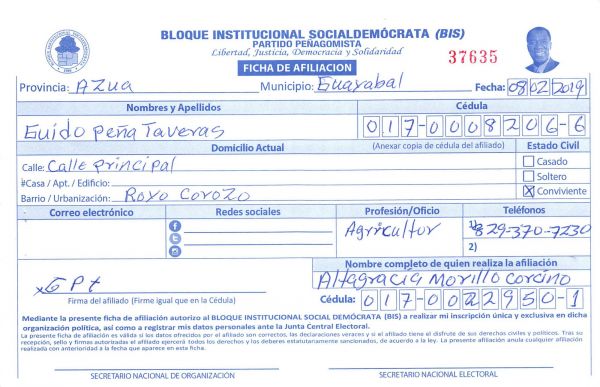 BLOQUE INSTITUCIONAL SOCIALDEMÓCRATA (BIS)
PARTIDO PEÑAGOMISTA
Libertad, Justicia, Democracia y Solidaridad
37635
FICHA DE AFILIACION
Provincia: AZUA Municipio: Guayabal Fecha: 08/02/2019
Nombres y Apellidos Cédula
Guido Peña Taveras 017-0008206-6
Domicilio Actual (Anexar copia de cédula del afiliado) Estado Civil
Calle: Calle principal Casado
#Casa / Apt. / Edificio: Soltero
Barrio / Urbanización: Royo Corozo X Conviviente
Correo electrónico Redes sociales Profesión/Oficio Teléfonos
Agricultor 1) 829-370-7230
2)
Nombre completo de quien realiza la afiliación
x G P t Altagracia Morillo Corcino
Firma del afiliado (Firme igual que en la Cédula) Cédula: 017-0022950-1
Mediante la presente ficha de afiliación autorizo al BLOQUE INSTITUCIONAL SOCIAL DEMÓCRATA (BIS) a realizar mi inscripción única y exclusiva en dicha
organización política, así como a registrar mis datos personales ante la Junta Central Electoral.
La presente ficha de afiliación es válida si los datos ofrecidos por el afiliado son correctos, las declaraciones veraces y si el afiliado tiene el disfrute de sus derechos civiles y políticos. Tras su
recepción, sello y firmas autorizadas el afiliado ejercerá todos los derechos y los deberes estatutariamente sancionados, de acuerdo a la ley. La presente afiliación anula cualquier afiliación
realizada con anterioridad a la fecha que aparece en esta ficha.
SECRETARIO NACIONAL DE ORGANIZACIÓN SECRETARIO NACIONAL ELECTORAL